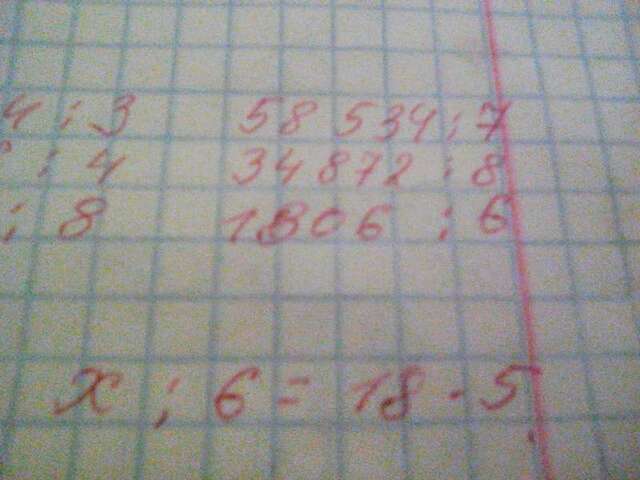 4 : 3 58 534 : 7
: 4 34 872 : 8
: 8 1806 : 6
x : 6 = 18 · 5